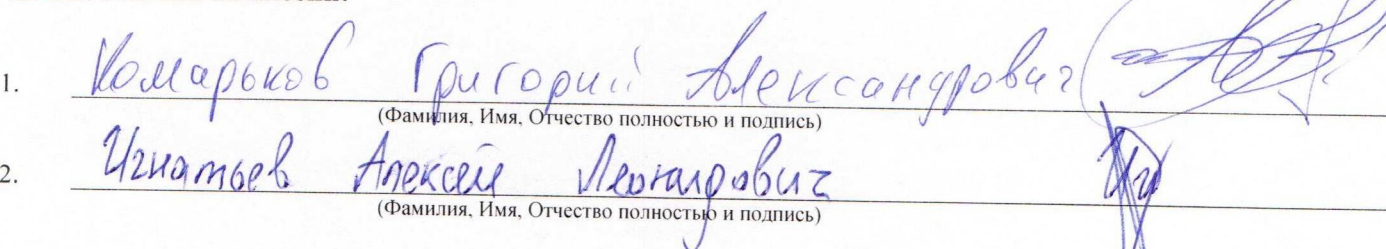 1. Комарьков Григорий Александрович
(Фамилия, Имя, Отчество полностью и подпись)
2. Игнатьев Алексей Леонидович
(Фамилия, Имя, Отчество полностью и подпись)